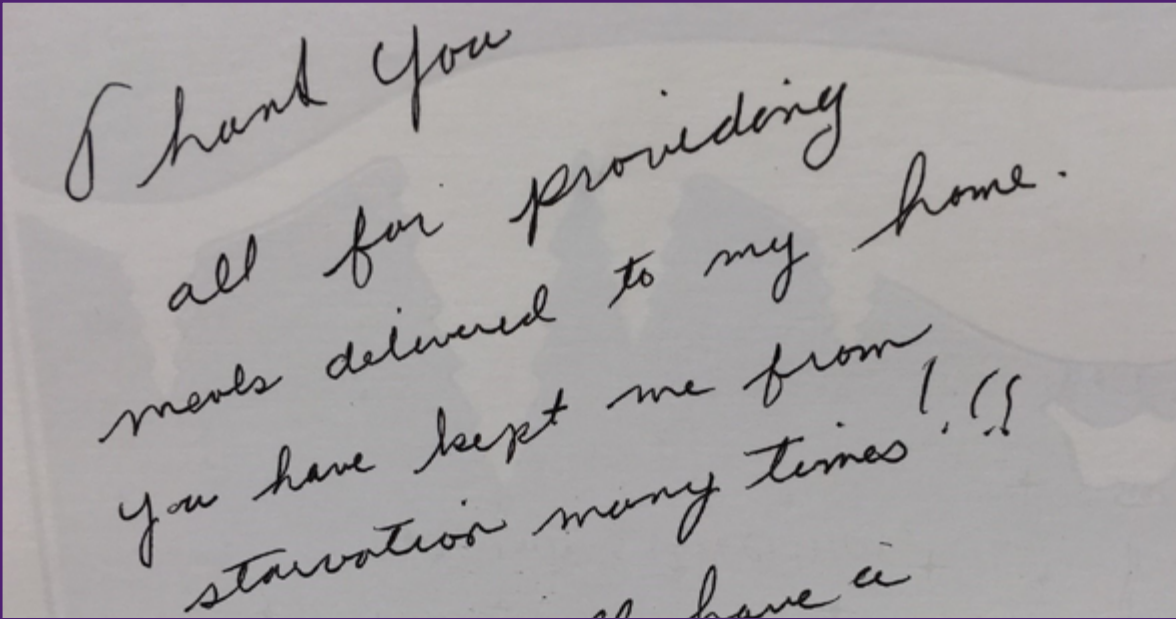 Thank You
all for providing
meals delivered to my home.
you have kept me from
starvation many times!!!
have a